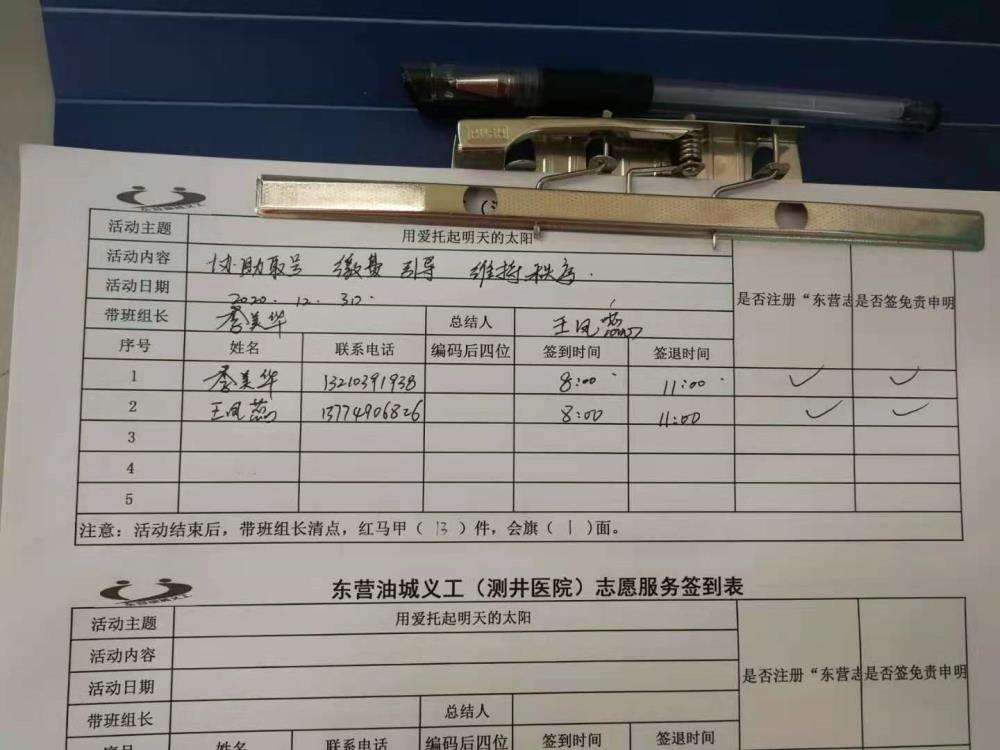 PUSH
活动主题 用爱托起明天的太阳
活动内容 协助取号 缴费 引导 维持秩序.
活动日期 2020. 12. 30. 是否注册“东营志 是否签免责申明
带班组长 李美华 总结人 王凤蕊
序号 姓名 联系电话 编码后四位 签到时间 签退时间
1 李美华 13210391938 8:00 11:00 ✓ ✓
2 王凤蕊 13774906826 8:00 11:00 ✓ ✓
3
4
5
注意：活动结束后，带班组长清点，红马甲（ 13 ）件，会旗（ 1 ）面。
东营油城义工
东营油城义工（测井医院）志愿服务签到表
活动主题 用爱托起明天的太阳
活动内容
活动日期 是否注册“东营志 是否签免责申明
带班组长 总结人
序号 姓名 联系电话 编码后四位 签到时间 签退时间